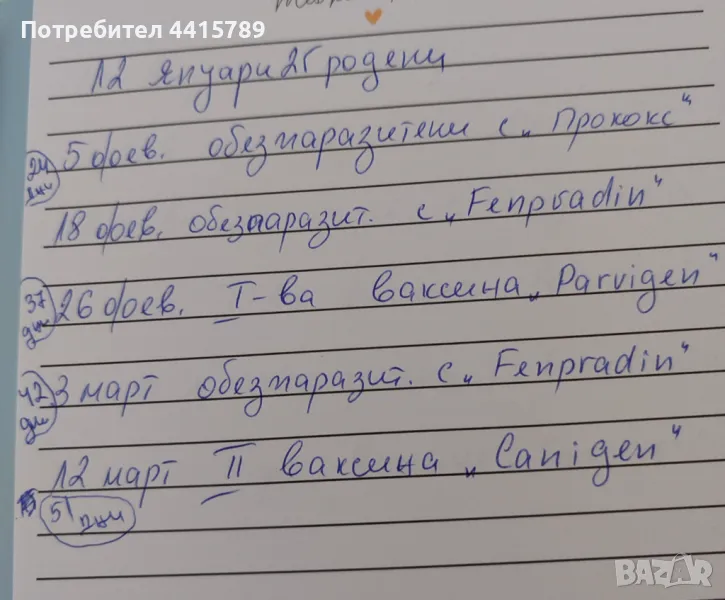 Потребител 4415789
12 януари 25 родени
24 дни 5 фев. обезпаразитени с „Прококс“
18 фев. обезпаразит. с „Fenpradin“
37 дни 26 фев. I-ва ваксина „Parvigen“
42 дни 3 март обезпаразит. с „Fenpradin“
12 март II ваксина „Canigen“
51 дни
BAZAR